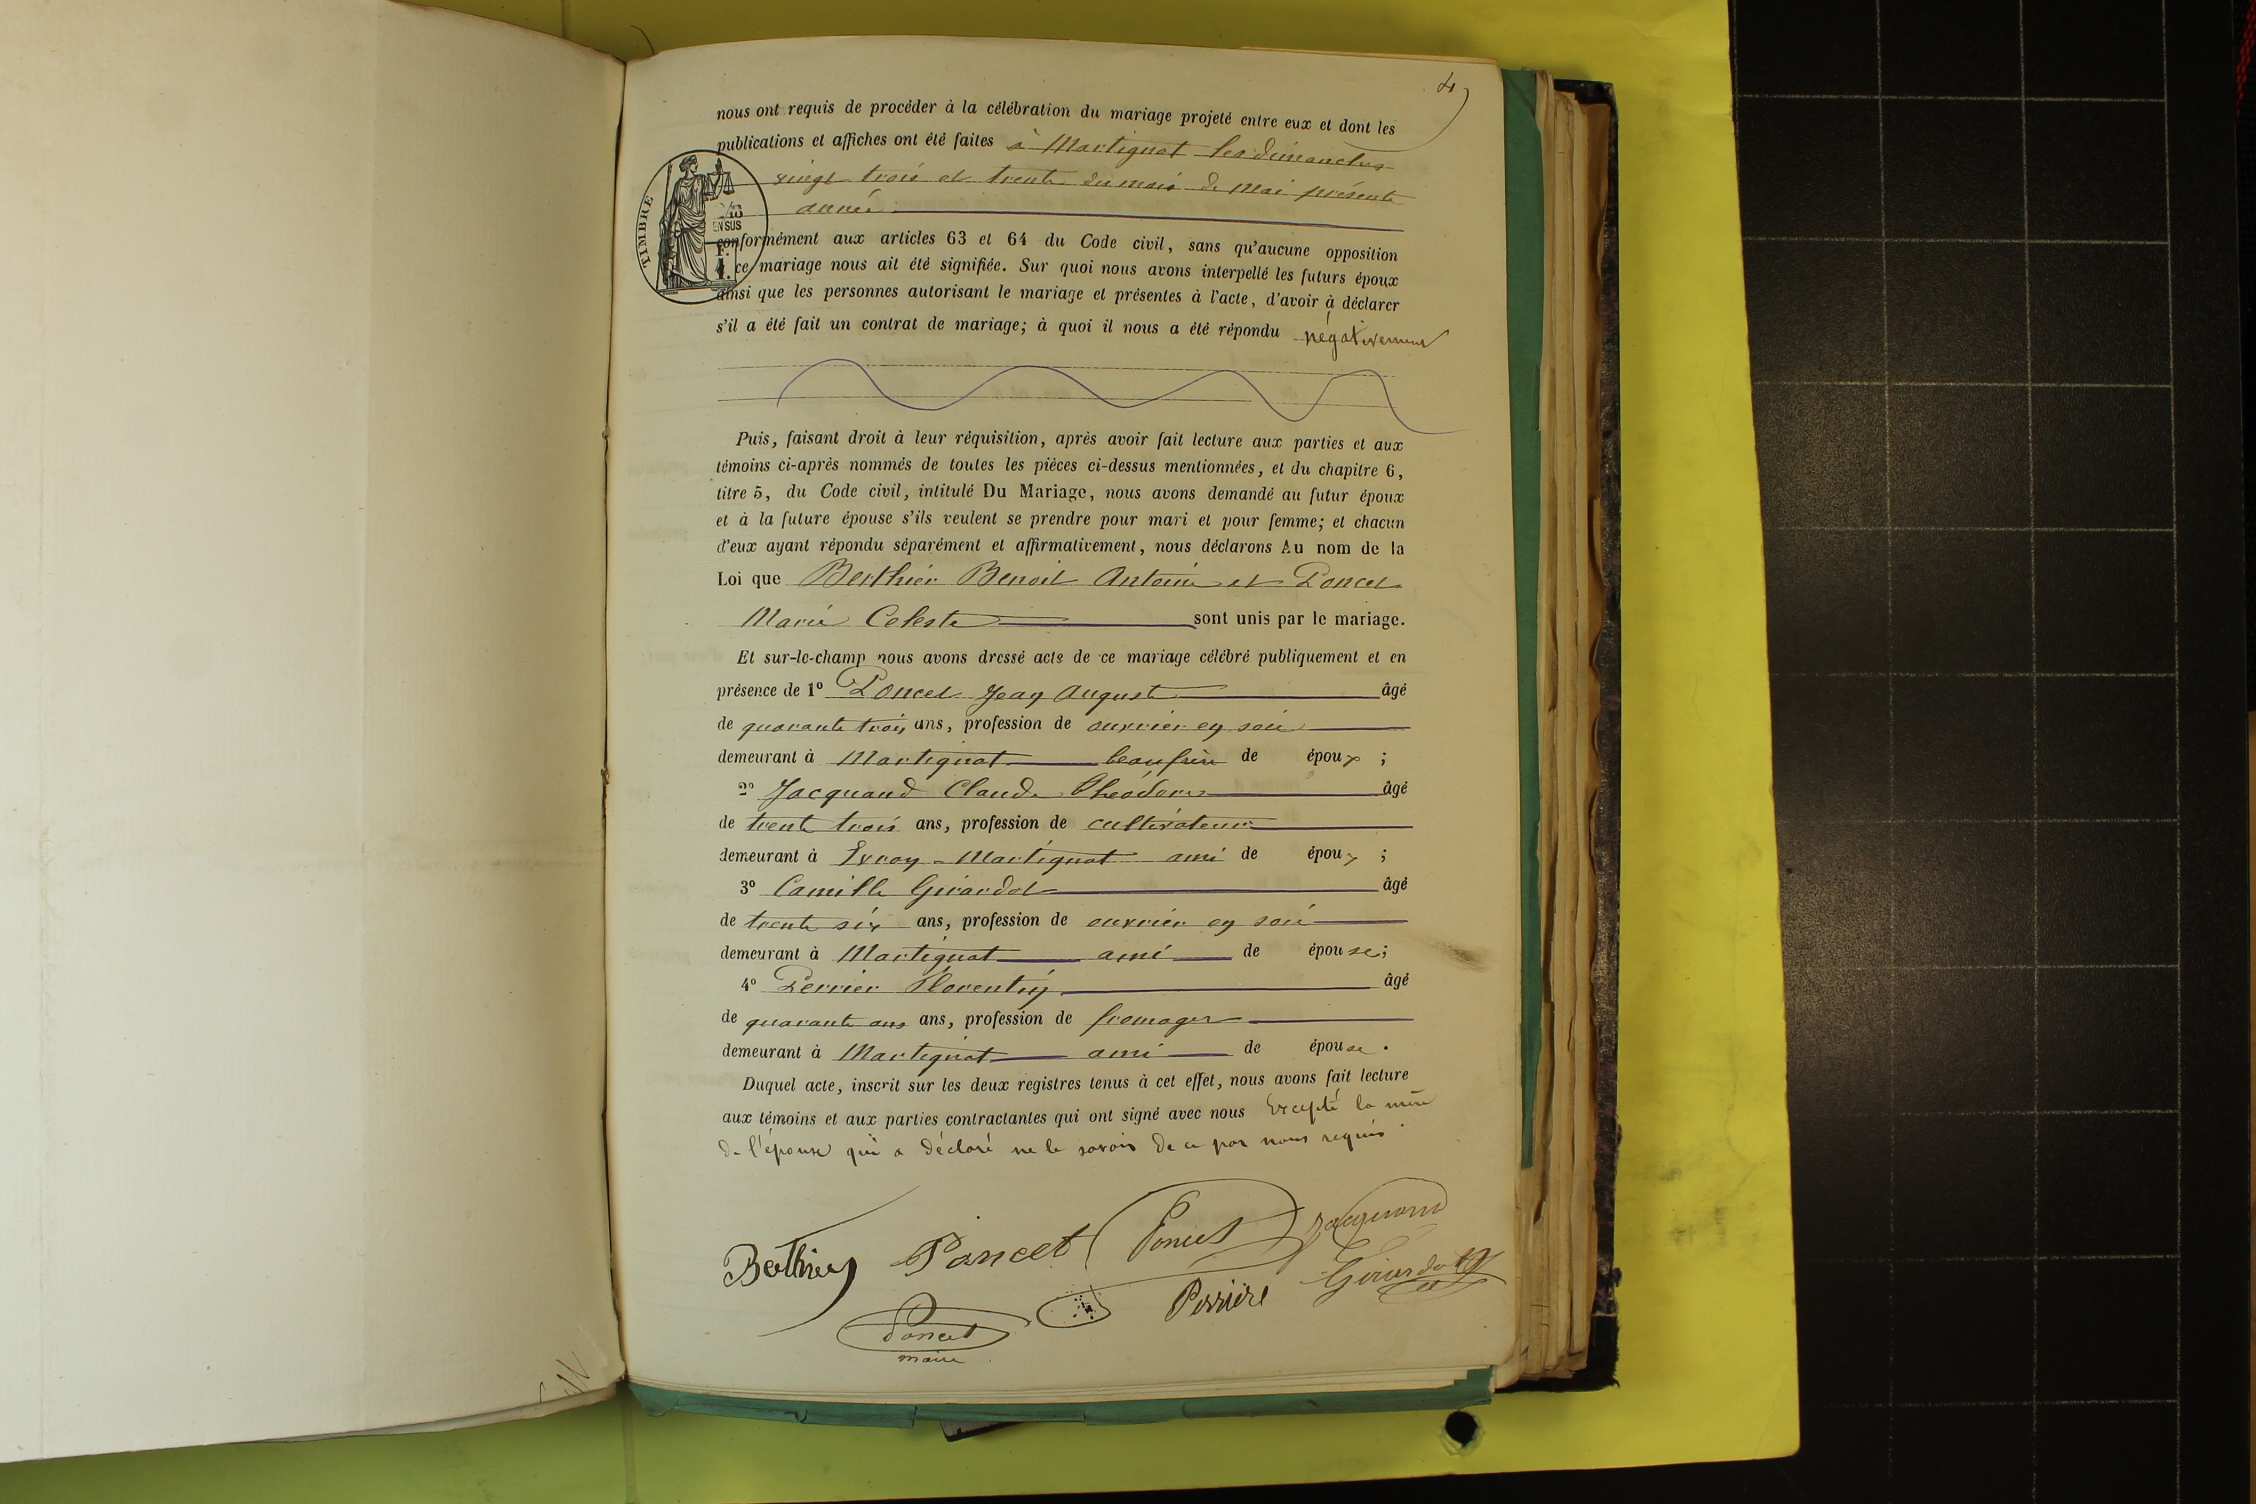 4
nous ont requis de procéder à la célébration du mariage projeté entre eux et dont les
publications et affiches ont été faites à Martignat les dimanches
vingt trois et trente du mois de Mai présente
année
TIMBRE
2/10
EN SUS
conformément aux articles 63 et 64 du Code civil, sans qu'aucune opposition
à ce mariage nous ait été signifiée. Sur quoi nous avons interpellé les futurs époux
ainsi que les personnes autorisant le mariage et présentes à l'acte, d'avoir à déclarer
s'il a été fait un contrat de mariage; à quoi il nous a été répondu négativement
Puis, faisant droit à leur réquisition, après avoir fait lecture aux parties et aux
témoins ci-après nommés de toutes les pièces ci-dessus mentionnées, et du chapitre 6,
titre 5, du Code civil, intitulé Du Mariage, nous avons demandé au futur époux
et à la future épouse s'ils veulent se prendre pour mari et pour femme; et chacun
d'eux ayant répondu séparément et affirmativement, nous déclarons Au nom de la
Loi que Berthier Benoit Antoine et Poncet
Marie Celeste sont unis par le mariage.
Et sur-le-champ nous avons dressé acte de ce mariage célébré publiquement et en
présence de 1º Poncet Jean Auguste âgé
de quarante trois ans, profession de ouvrier en soie
demeurant à Martignat beaufrère de époux ;
2º Jacquand Claude Théodore âgé
de trente trois ans, profession de cultivateur
demeurant à Evron-Martignat ami de époux ;
3º Camille Girardot âgé
de trente six ans, profession de ouvrier en soie
demeurant à Martignat ami de épouse;
4º Perrier Florentin âgé
de quarante ans ans, profession de fromager
demeurant à Martignat ami de épouse.
Duquel acte, inscrit sur les deux registres tenus à cet effet, nous avons fait lecture
aux témoins et aux parties contractantes qui ont signé avec nous Excepté la mère
de l'épouse qui a déclaré ne le savoir de ce par nous requis.
Berthier Poncet Poncet Jacquand
Perrière Girardot
Poncet
maire